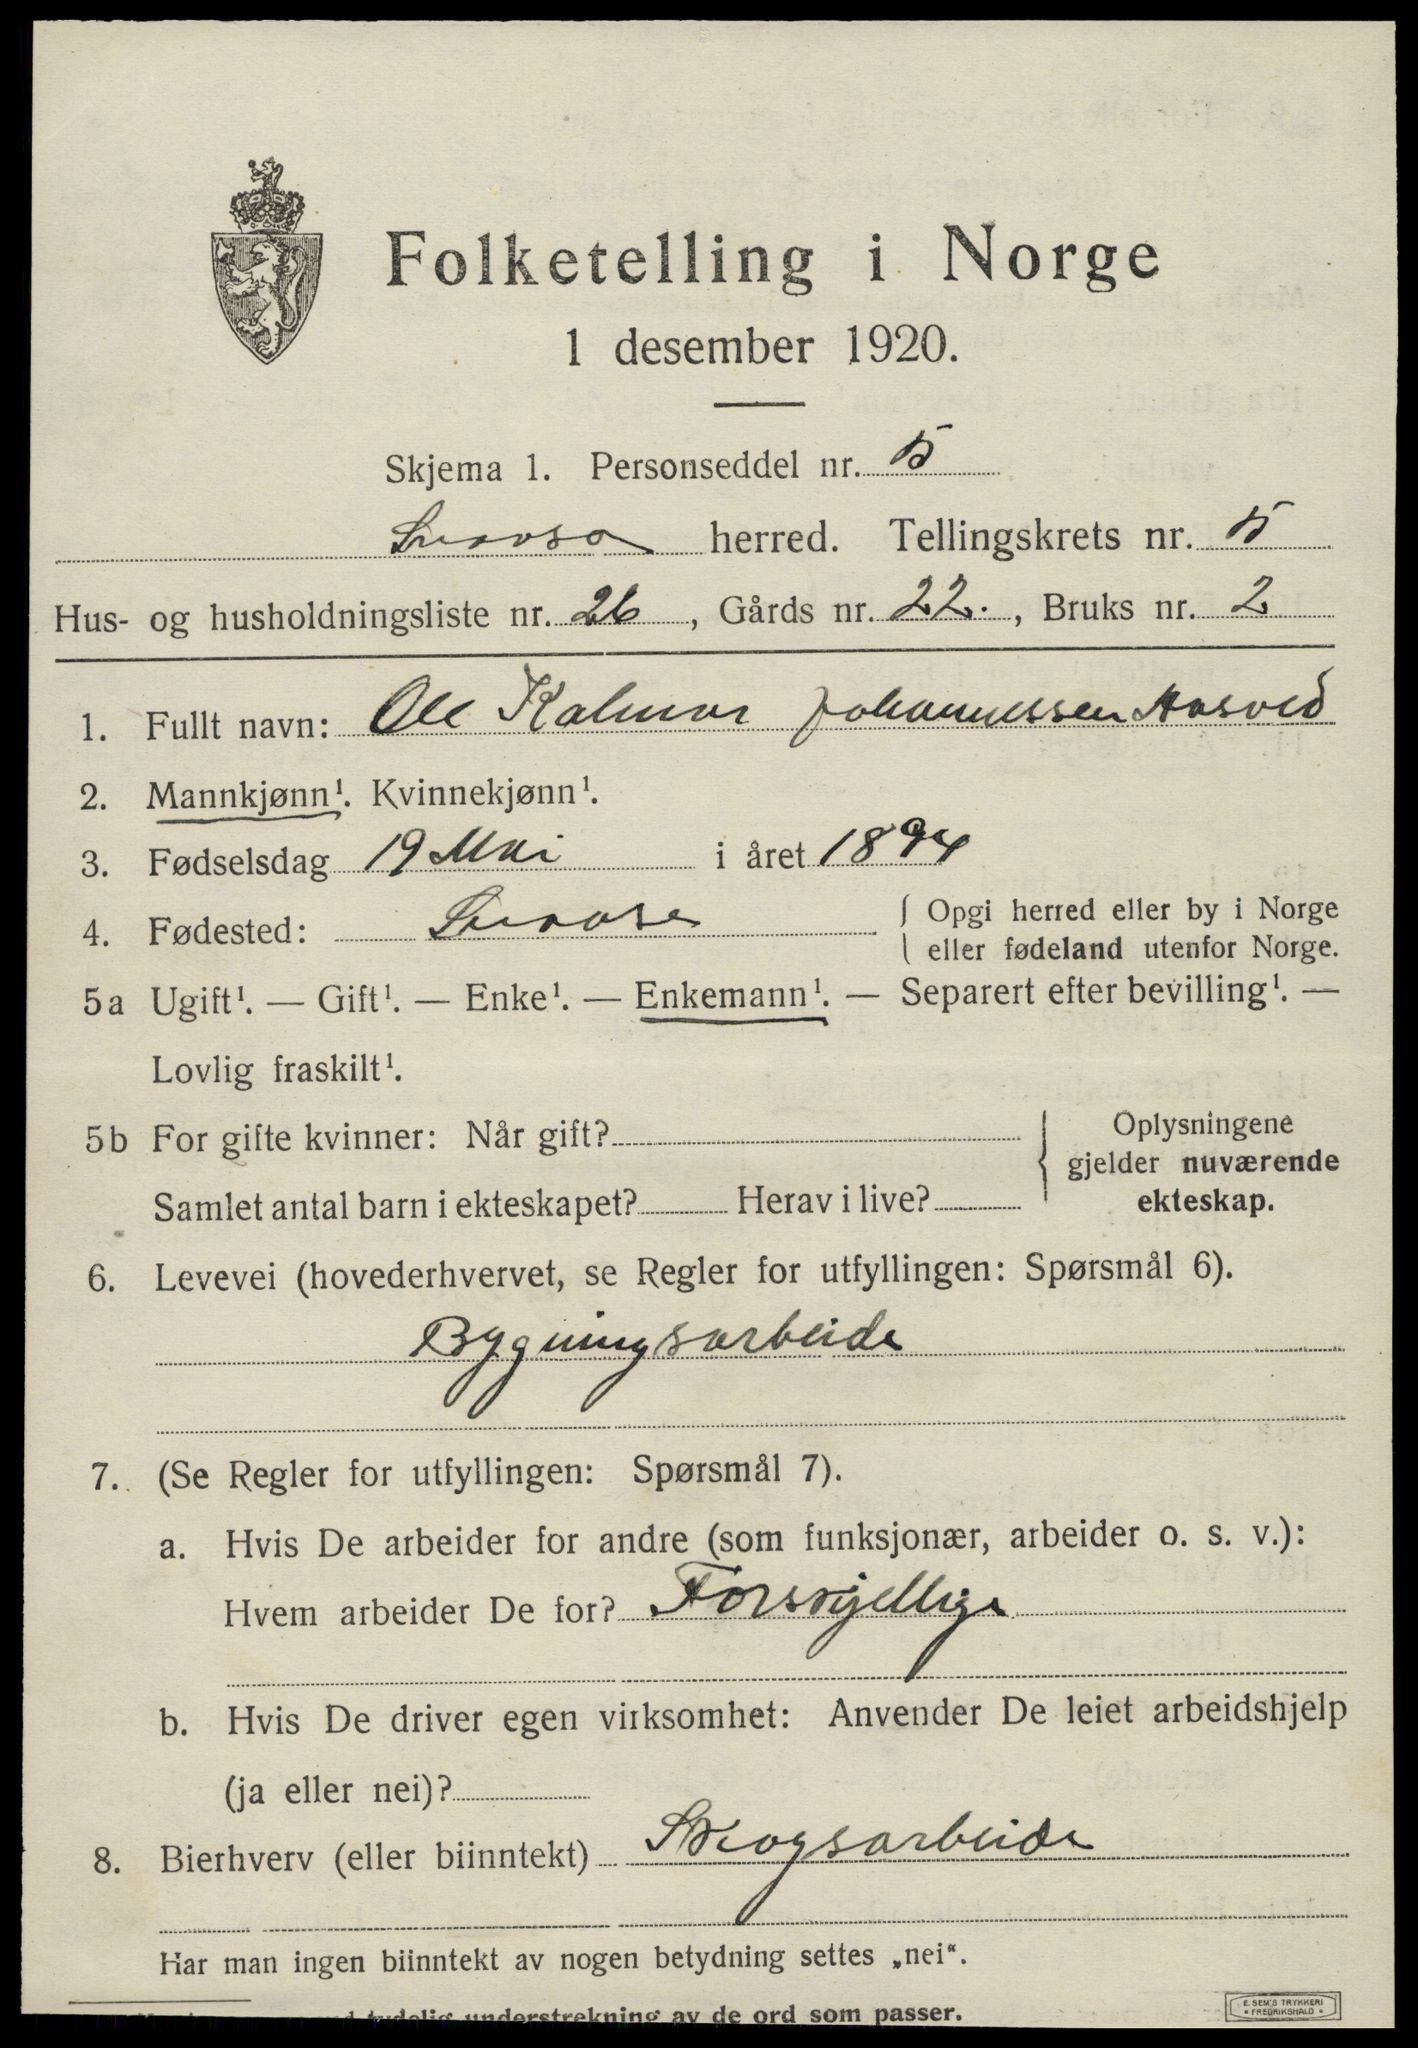 Folketelling i Norge
1 desember 1920.
Skjema 1. Personseddel nr. 5
Snaasa herred. Tellingskrets nr. 5
Hus- og husholdningsliste nr. 26, Gårds nr. 22., Bruks nr. 2
1. Fullt navn: Ole Kalmar Johannessen Aasved
2. Mannkjønn¹. Kvinnekjønn¹.
3. Fødselsdag 19 Mai i året 1894
4. Fødested: Snaase { Opgi herred eller by i Norge
eller fødeland utenfor Norge.
5a Ugift¹. — Gift¹. — Enke¹. — Enkemann¹. — Separert efter bevilling¹. —
Lovlig fraskilt¹.
5b For gifte kvinner: Når gift? { Oplysningene
gjelder nuværende
ekteskap.
Samlet antal barn i ekteskapet? Herav i live?
6. Levevei (hovederhvervet, se Regler for utfyllingen: Spørsmål 6).
Bygningsarbeide
7. (Se Regler for utfyllingen: Spørsmål 7).
a. Hvis De arbeider for andre (som funksjonær, arbeider o. s. v.):
Hvem arbeider De for? Forskjellige
b. Hvis De driver egen virksomhet: Anvender De leiet arbeidshjelp
(ja eller nei)?
8. Bierhverv (eller biinntekt) Skogsarbeide
Har man ingen biinntekt av nogen betydning settes „nei“.
tydelig understrekning av de ord som passer.
E. SEM'S TRYKKERI
• FREDRIKSHALD •